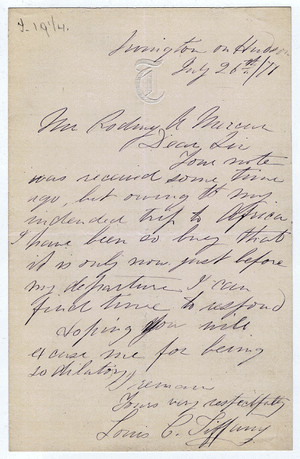 Irvington on Hudson
July 26th/71
Mr Rodney A Mercur
Dear Sir
Your note
was received some time
ago, but owing to my
indended trip to Africa
I have been so busy that
it is only now, just before
my departure I can
find time to respond
Hoping you will
excuse me for being
so dilatory,
I remain
Yours very respectfully
Louis C. Tiffany